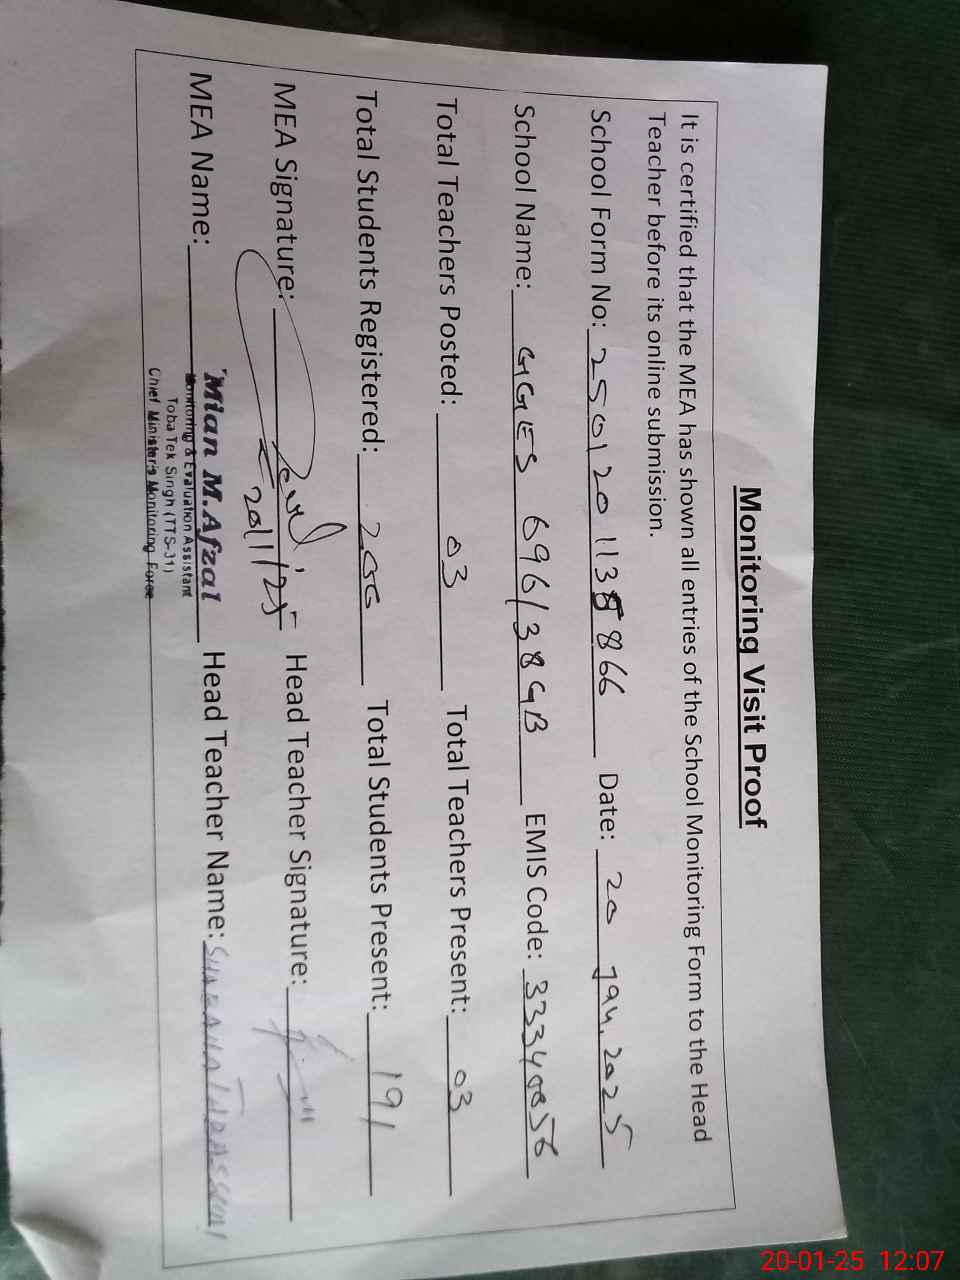 Monitoring Visit Proof
It is certified that the MEA has shown all entries of the School Monitoring Form to the Head
Teacher before its online submission.
School Form No: 2501201138866 Date: 20 Jan, 2025
School Name: GGES 696/38GB EMIS Code: 33340056
Total Teachers Posted: 03 Total Teachers Present: 03
Total Students Registered: 200 Total Students Present: 191
MEA Signature: Head Teacher Signature:
20/1/25
MEA Name: Mian M.Afzal Head Teacher Name:
Monitoring & Evaluation Assistant
Toba Tek Singh (TTS-31)
Chief Minister's Monitoring Force
20-01-25 12:07